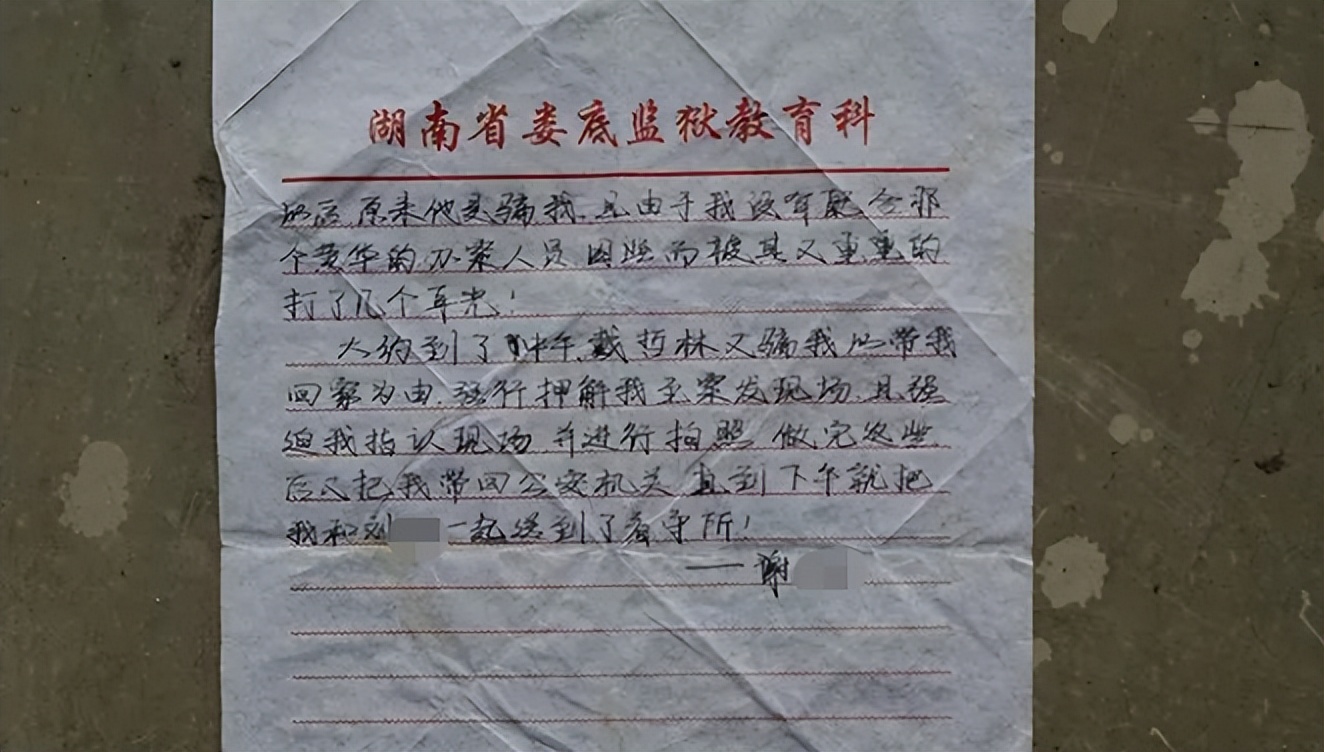 湖南省娄底监狱教育科
原来他是骗我.且由于我没有配合那
个黄华的办案人员因此而被其又重重的
打了几个耳光!
大约到了中午,戴哲林又骗我以带我
回家为由.强行押解我至案发现场.且强
迫我指认现场并进行拍照 做完这些
后又把我带回公安机关 直到下午就把
我和刘 一起送到了看守所!
——谢